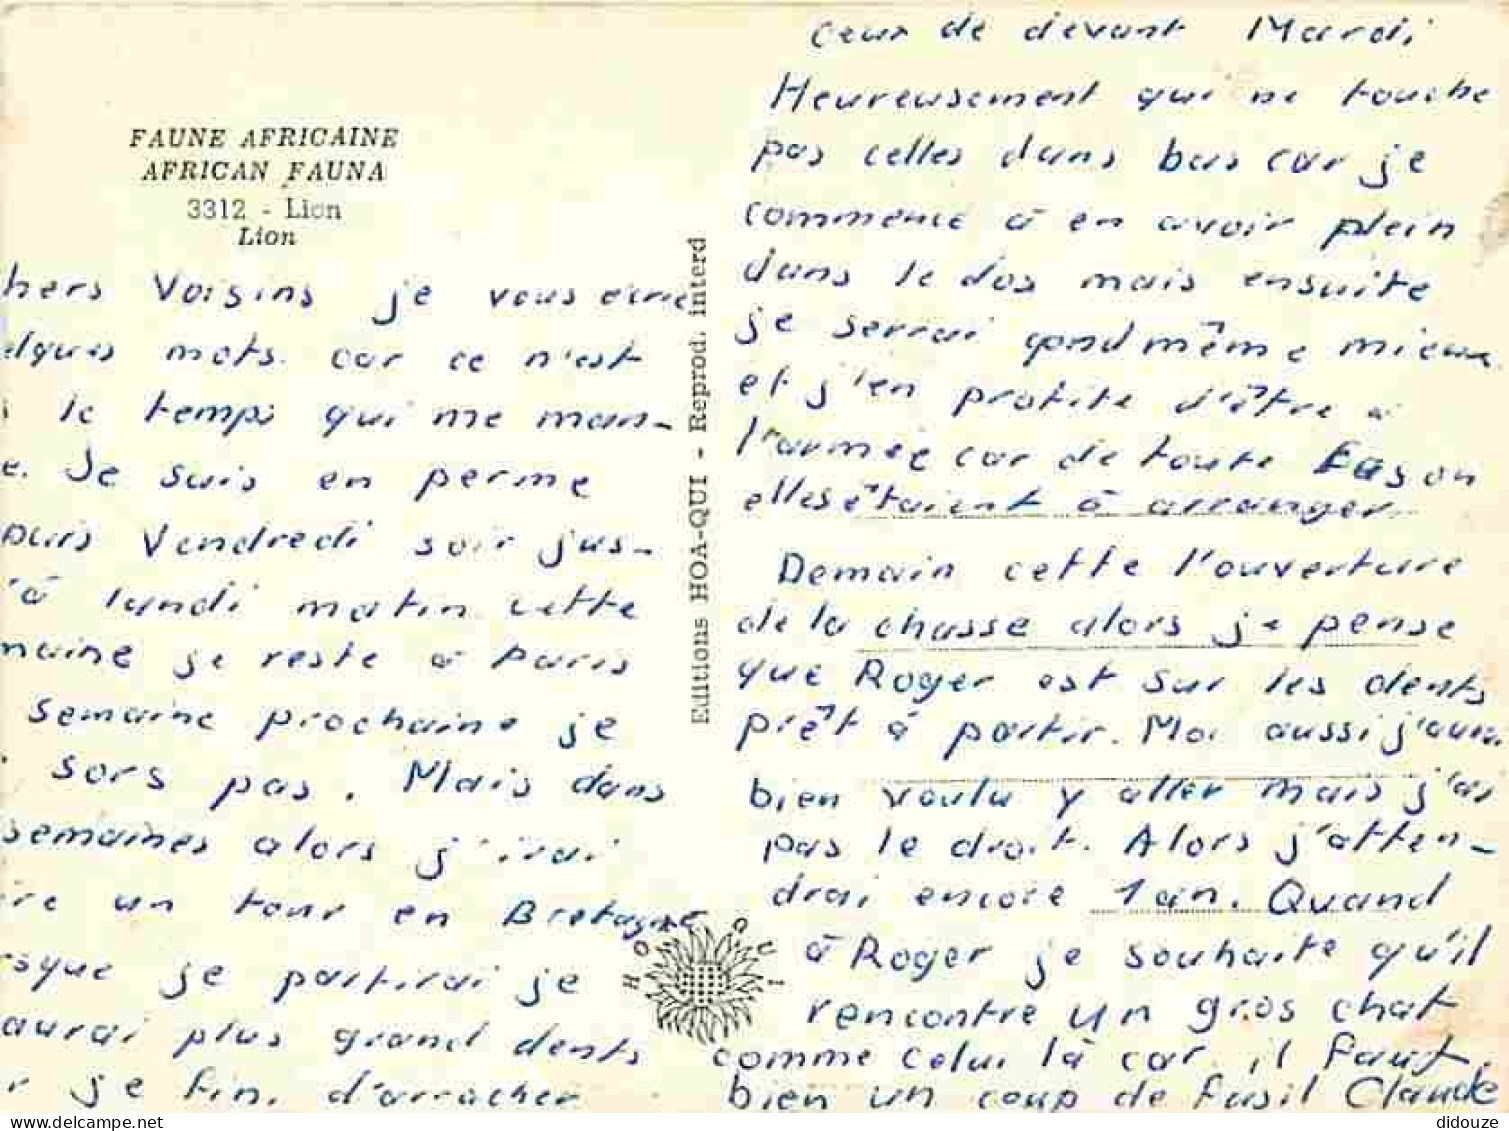 FAUNE AFRICAINE
AFRICAN FAUNA
3312 - Lion
Lion
hers Voisins je vous écrie
elques mots. car ce n'est
le temps qui me man-
e. Je suis en perme
puis Vendredi soir jus-
'à lundi matin cette
maine je reste à Paris
semaine prochaine je
sors pas. Mais dans
semaines alors j'irai
ire un tour en Bretagne
rsque je partirai je
aurai plus grand dents
r je fini d'arracher
Editions HOA-QUI - Reprod. interd
HOA QUI
ceux de devant Mardi
Heureusement qui ne touche
pas celles dans bas car je
commence à en avoir plein
dans le dos mais ensuite
je serrai qand même mieux
et j'en profite d'être à
l'armée car de toute Fason
elles étaient à arranger.
Demain cette l'ouverture
de la chasse alors je pense
que Roger est sur les dents
prêt à partir. Moi aussi j'aurai
bien voulu y aller mais j'ai
pas le droit. Alors j'atten-
drai encore 1 an. Quand
à Roger je souhaite qu'il
rencontre un gros chat
comme celui là car il faut
bien un coup de fusil Claude
didouze